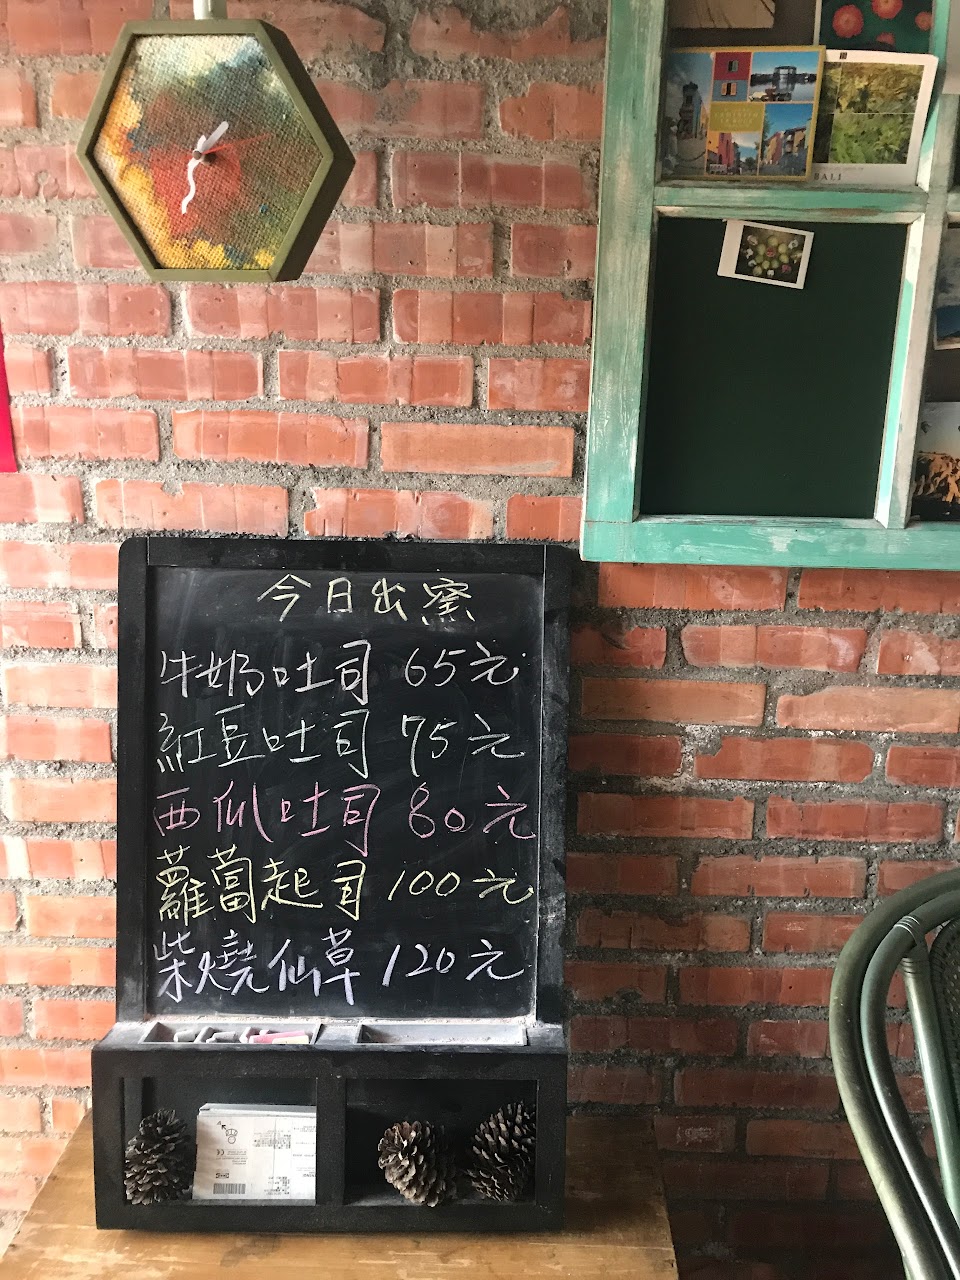 BALI
今日出窯
牛奶吐司 65元
紅豆吐司 75元
西瓜吐司 80元
蘿蔔起司 100元
柴燒仙草 120元